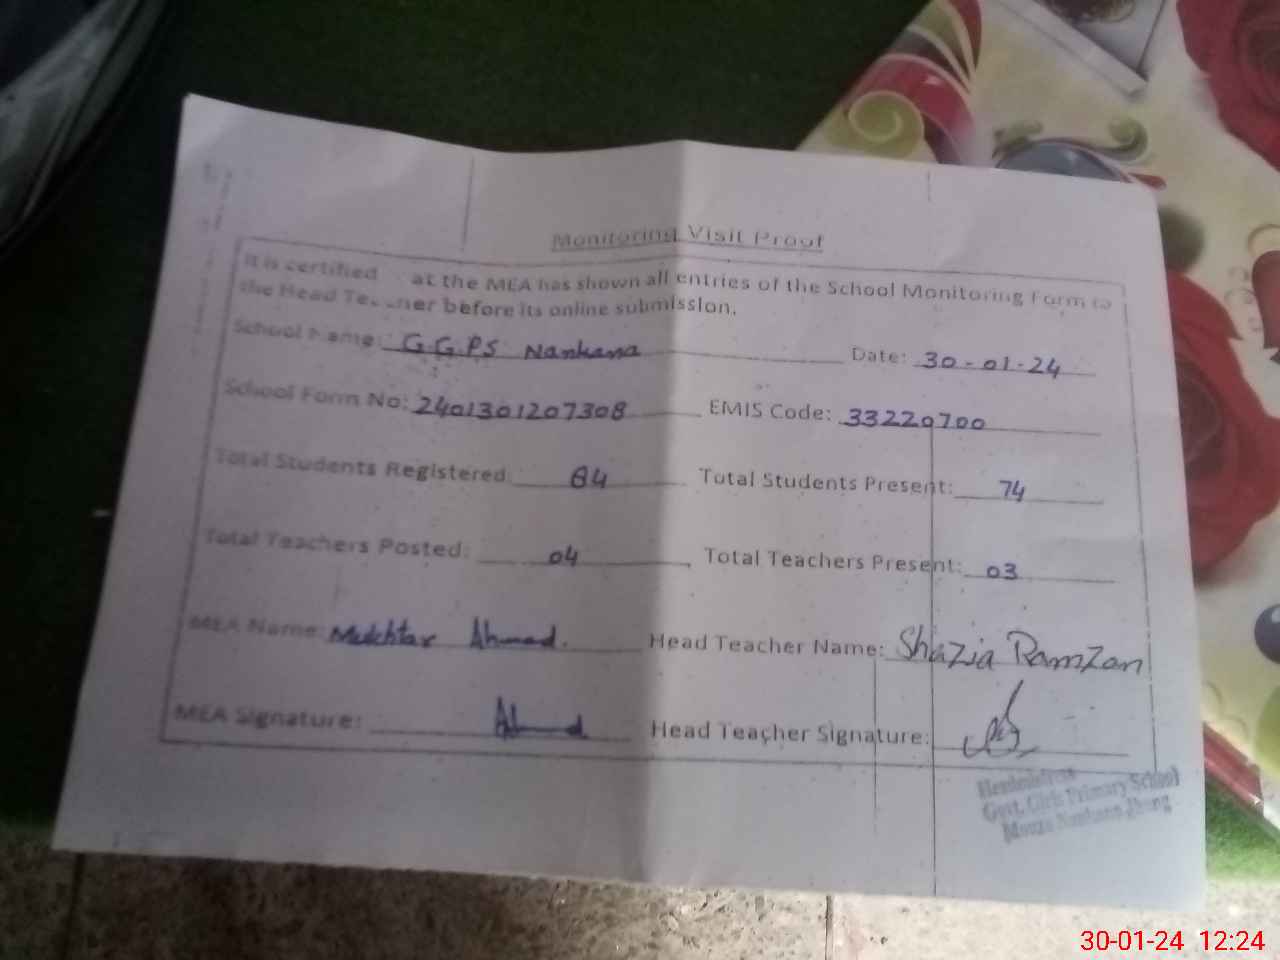 Monitoring Visit Proof
It is certified at the MEA has shown all entries of the School Monitoring Form to
the Head Teacher before its online submission.
School Name: G.G.P.S Nankana Date: 30-01-24
School Form No: 2401301207308 EMIS Code: 33220700
Total Students Registered: 84 Total Students Present: 74
Total Teachers Posted: 04 Total Teachers Present: 03
MEA Name: Mukhtar Ahmad. Head Teacher Name: Shazia Ramzan
MEA Signature: Ahmad Head Teacher Signature:
Headmistress
Govt. Girls Primary School
Mouza Nankana Jhang
30-01-24 12:24